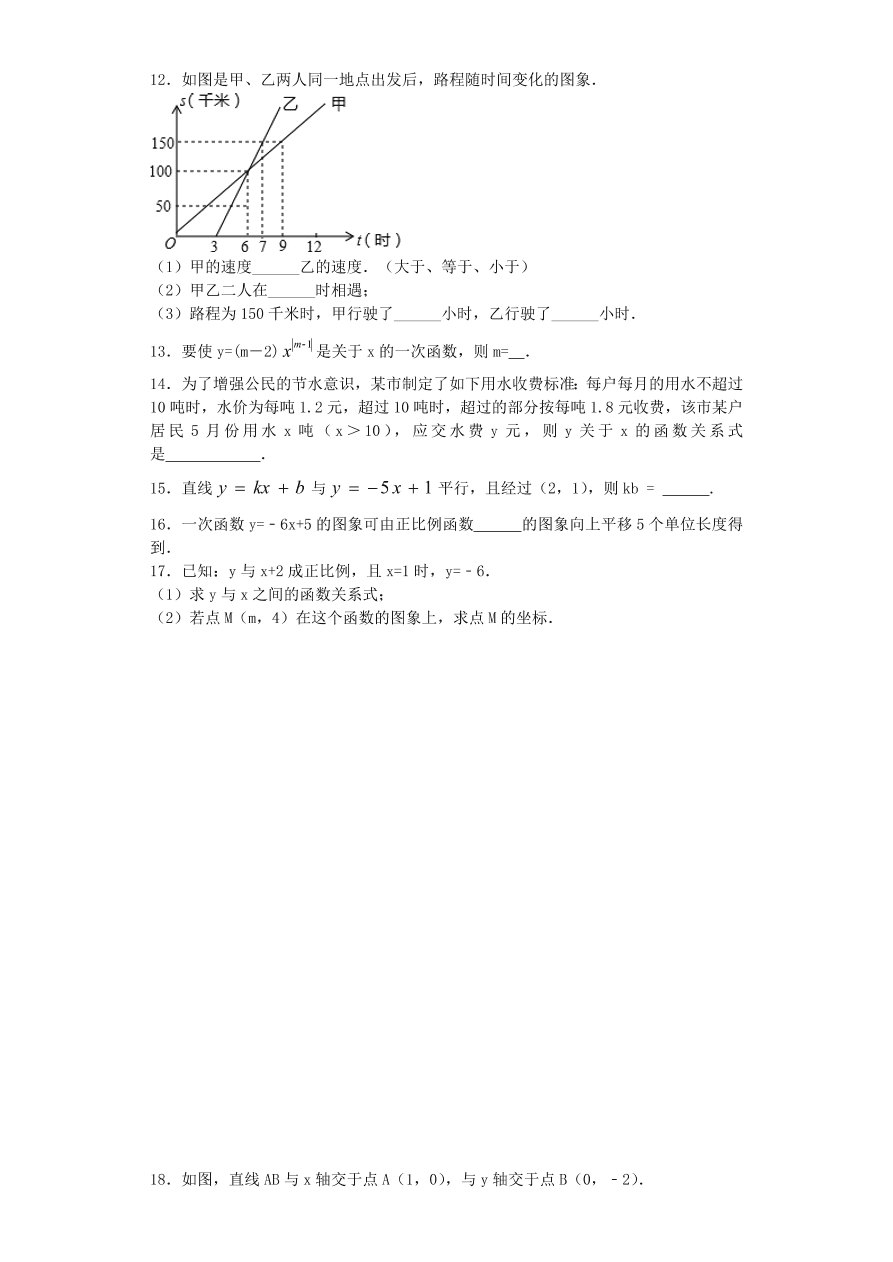 12．如图是甲、乙两人同一地点出发后，路程随时间变化的图象．
s(千米) 乙 甲
150
100
50
O 3 6 7 9 12 t(时)
（1）甲的速度______乙的速度．（大于、等于、小于）
（2）甲乙二人在______时相遇；
（3）路程为 150 千米时，甲行驶了______小时，乙行驶了______小时．
13．要使 y=(m－2) x^|m-1| 是关于 x 的一次函数，则 m=__．
14．为了增强公民的节水意识，某市制定了如下用水收费标准：每户每月的用水不超过
10 吨时，水价为每吨 1.2 元，超过 10 吨时，超过的部分按每吨 1.8 元收费，该市某户
居民 5 月份用水 x 吨（x＞10），应交水费 y 元，则 y 关于 x 的函数关系式
是____________．
15．直线 y = kx + b 与 y = −5x + 1 平行，且经过（2，1），则 kb = ______．
16．一次函数 y=﹣6x+5 的图象可由正比例函数______的图象向上平移 5 个单位长度得
到．
17．已知：y 与 x+2 成正比例，且 x=1 时，y=﹣6．
（1）求 y 与 x 之间的函数关系式；
（2）若点 M（m，4）在这个函数的图象上，求点 M 的坐标．
18．如图，直线 AB 与 x 轴交于点 A（1，0），与 y 轴交于点 B（0，﹣2）．